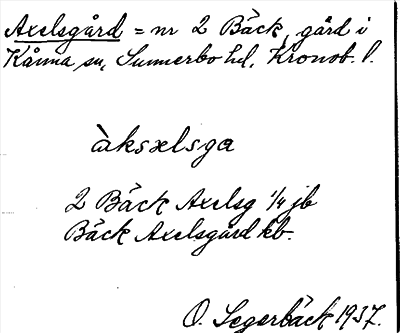 Axelsgård = nr 2 Bäck, gård i
Kånna sn, Sunnerbo hd, Kronob. l.
àksəlsga
2 Bäck Axelsg 1/4 jb
Bäck Axelsgård kb.
O. Segerbäck 1937.